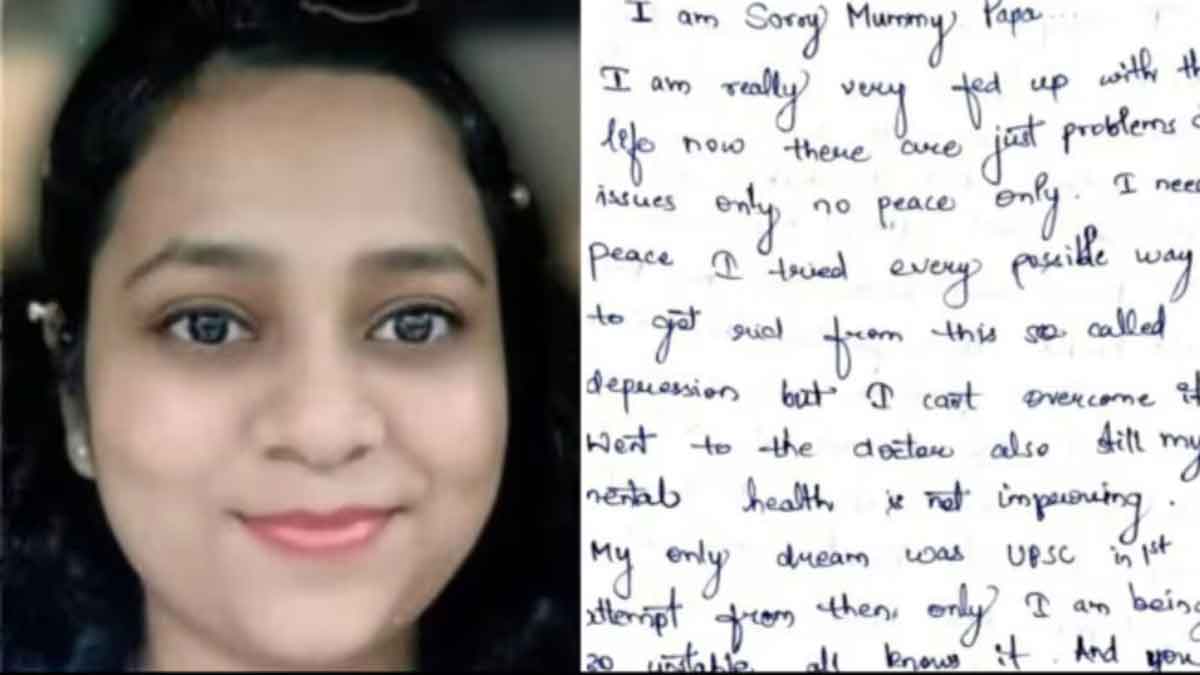 I am Sorry Mummy Papa...
I am really very fed up with th
life now there are just problems
issues only no peace only. I nee
peace I tried every possible way
to get rid from this so called
depression but I cant overcome it
went to the doctor also still my
mental health is not improving.
My only dream was UPSC in 1st
attempt from then only I am being
so unstable all knows it. And you